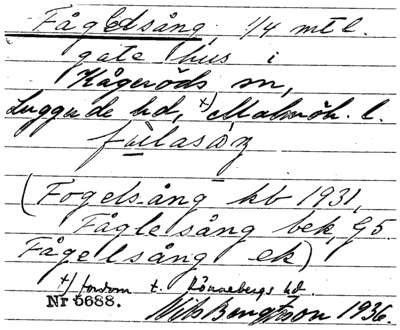 Fågelsång, 1/4 mtl.
gate hus i
Kågeröds sn,
Luggude hd, x) Malmöh. l.
(Fogelsång kb 1931,
Fåglesång bek, G5
Fågelsång ek)
x) fordom t. Rönnebergs hd.
Nr 5688.
Nils Bengtsson 1936.